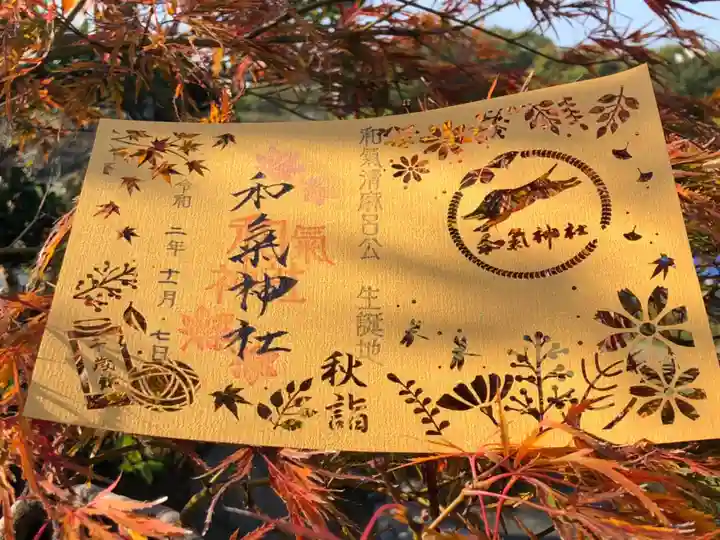 和気神社
和氣清麻呂公 生誕地
和氣神社
秋詣
令和二年十一月七日